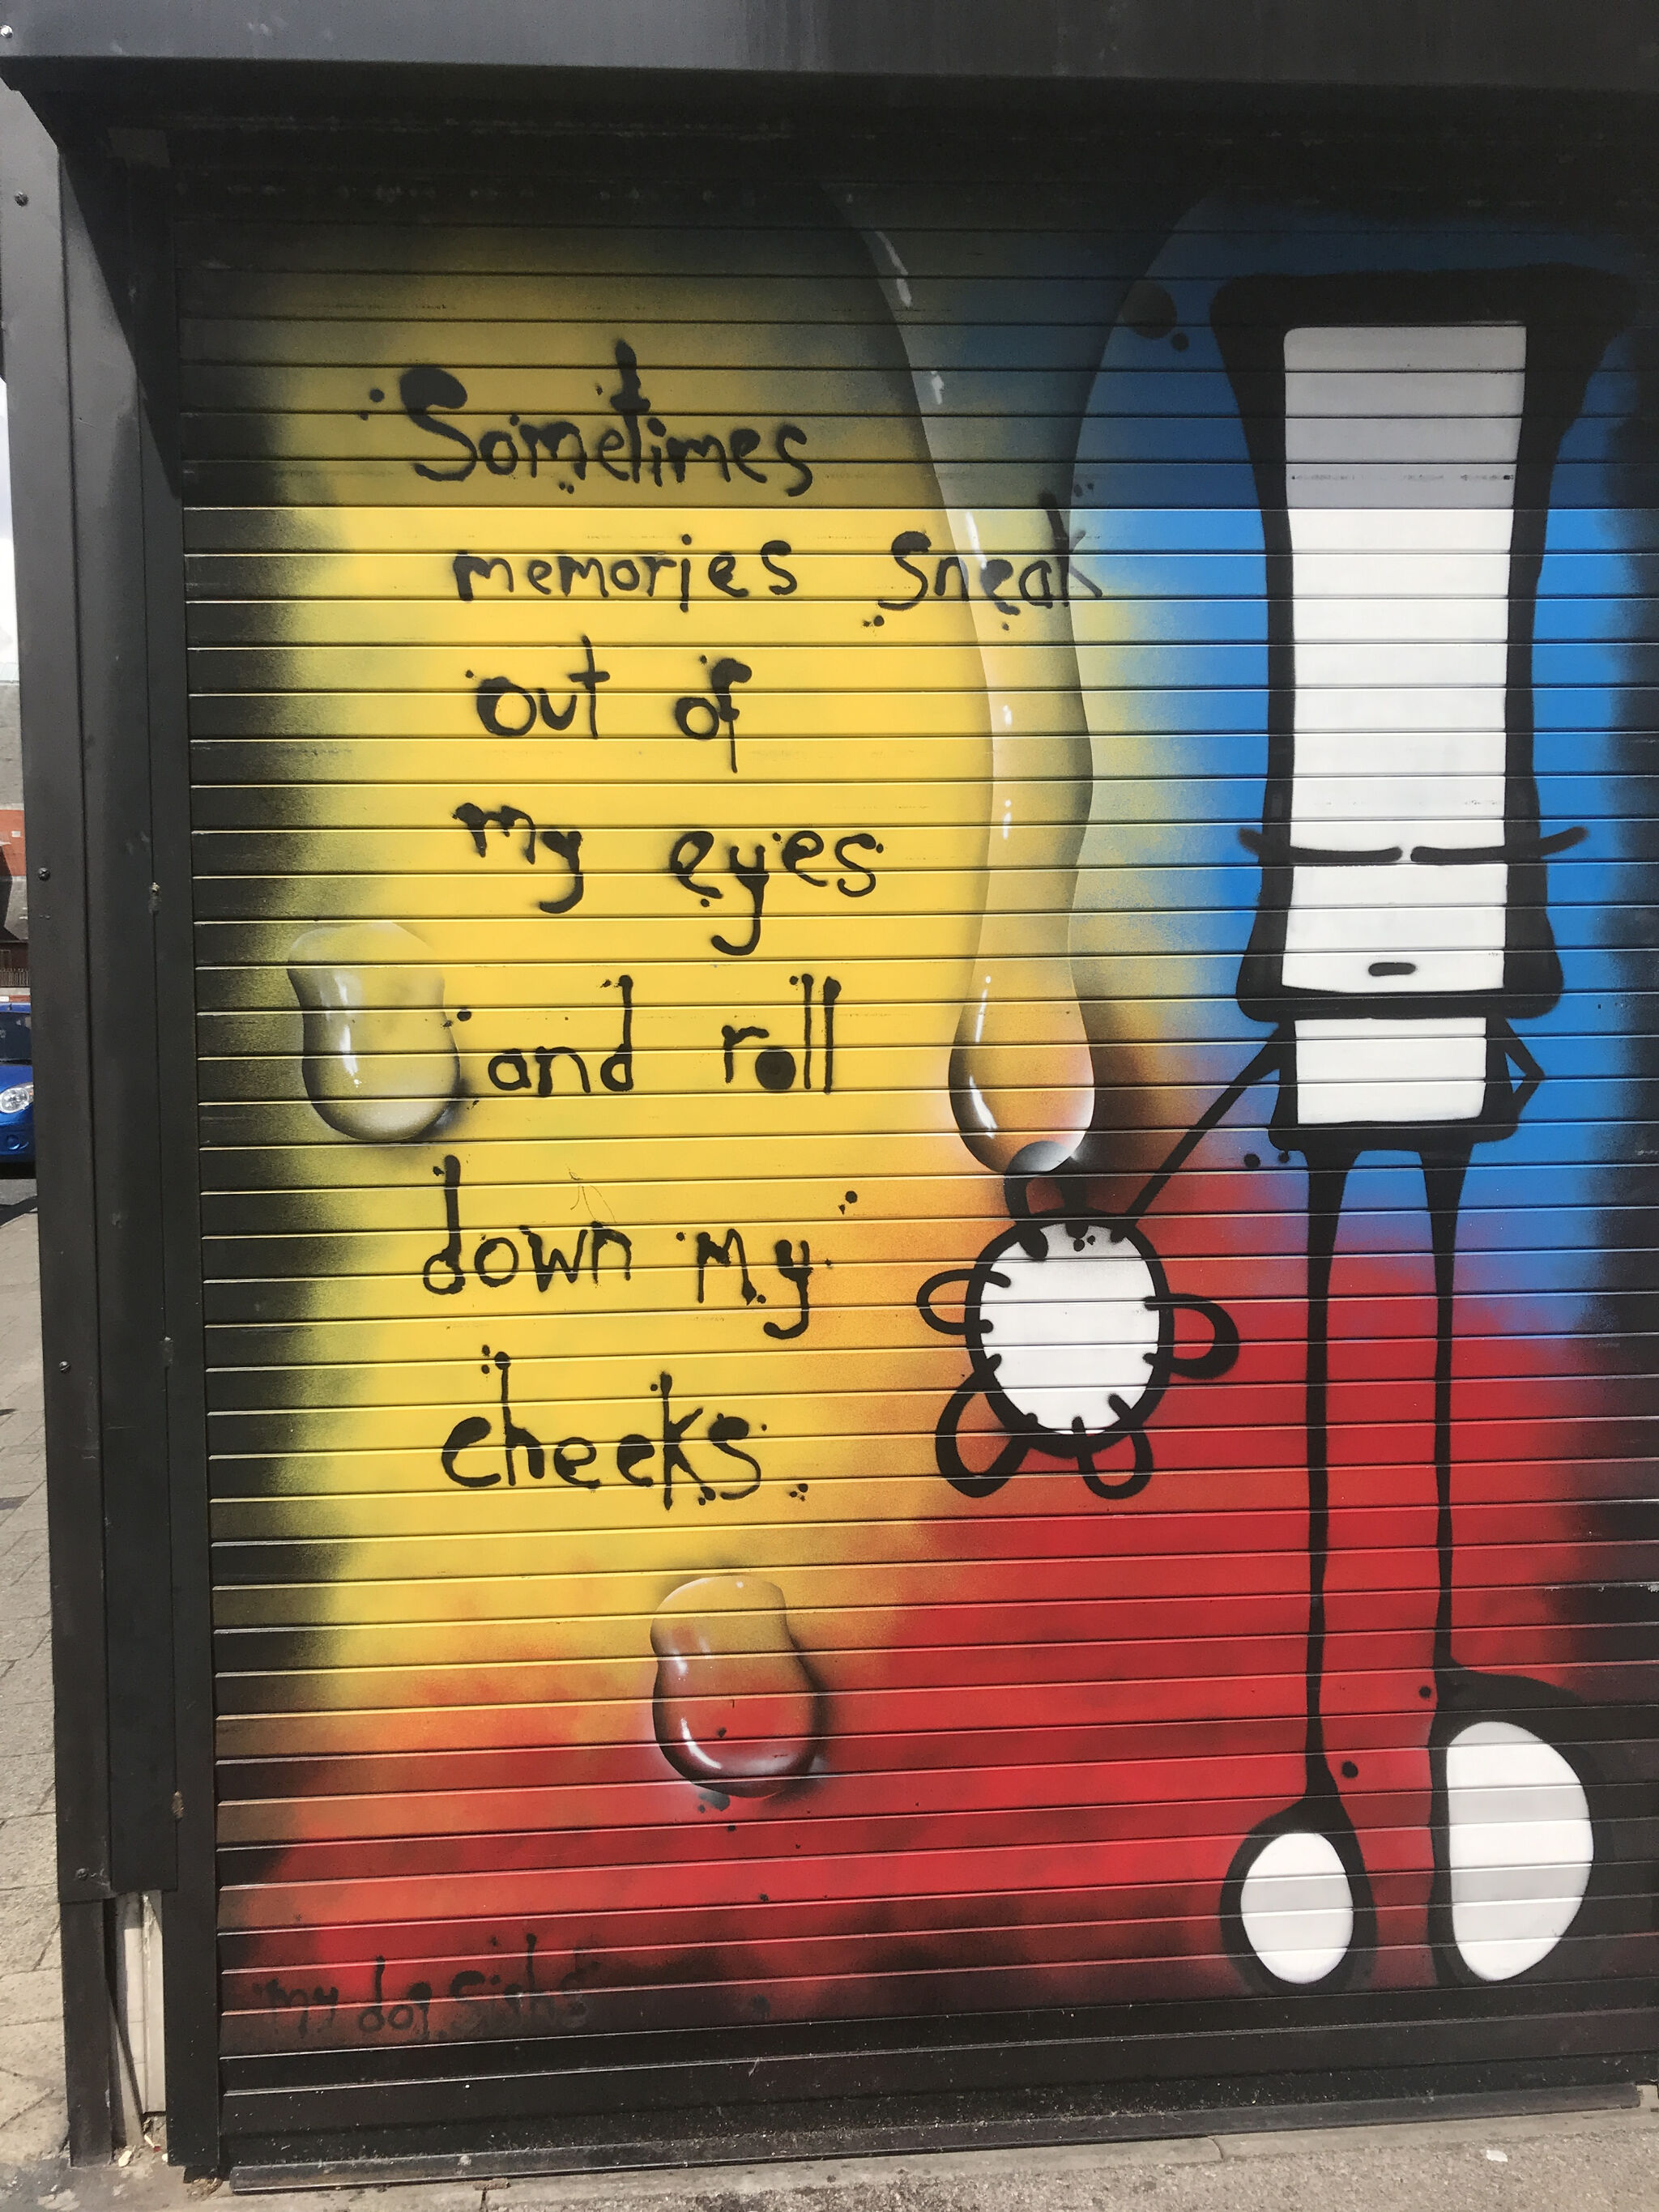 Sometimes
memories Sneak
out of
my eyes
and roll
down my
cheeks
my dog sighs